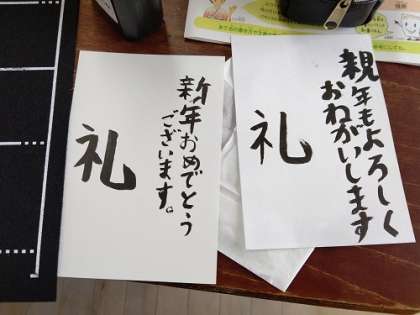 新年おめでとう
ございます。
礼
親年もよろしく
おねがいします
礼